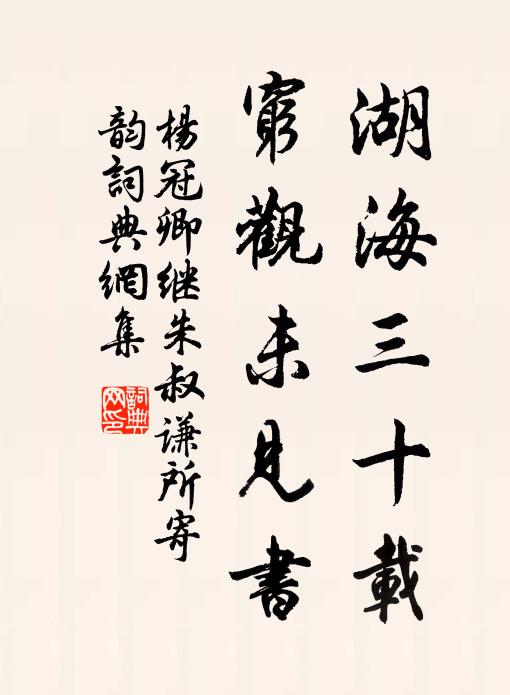 湖海三十載
窮觀未見書
楊冠卿继朱叔谦所寄
韵詞典網集
詞典网印